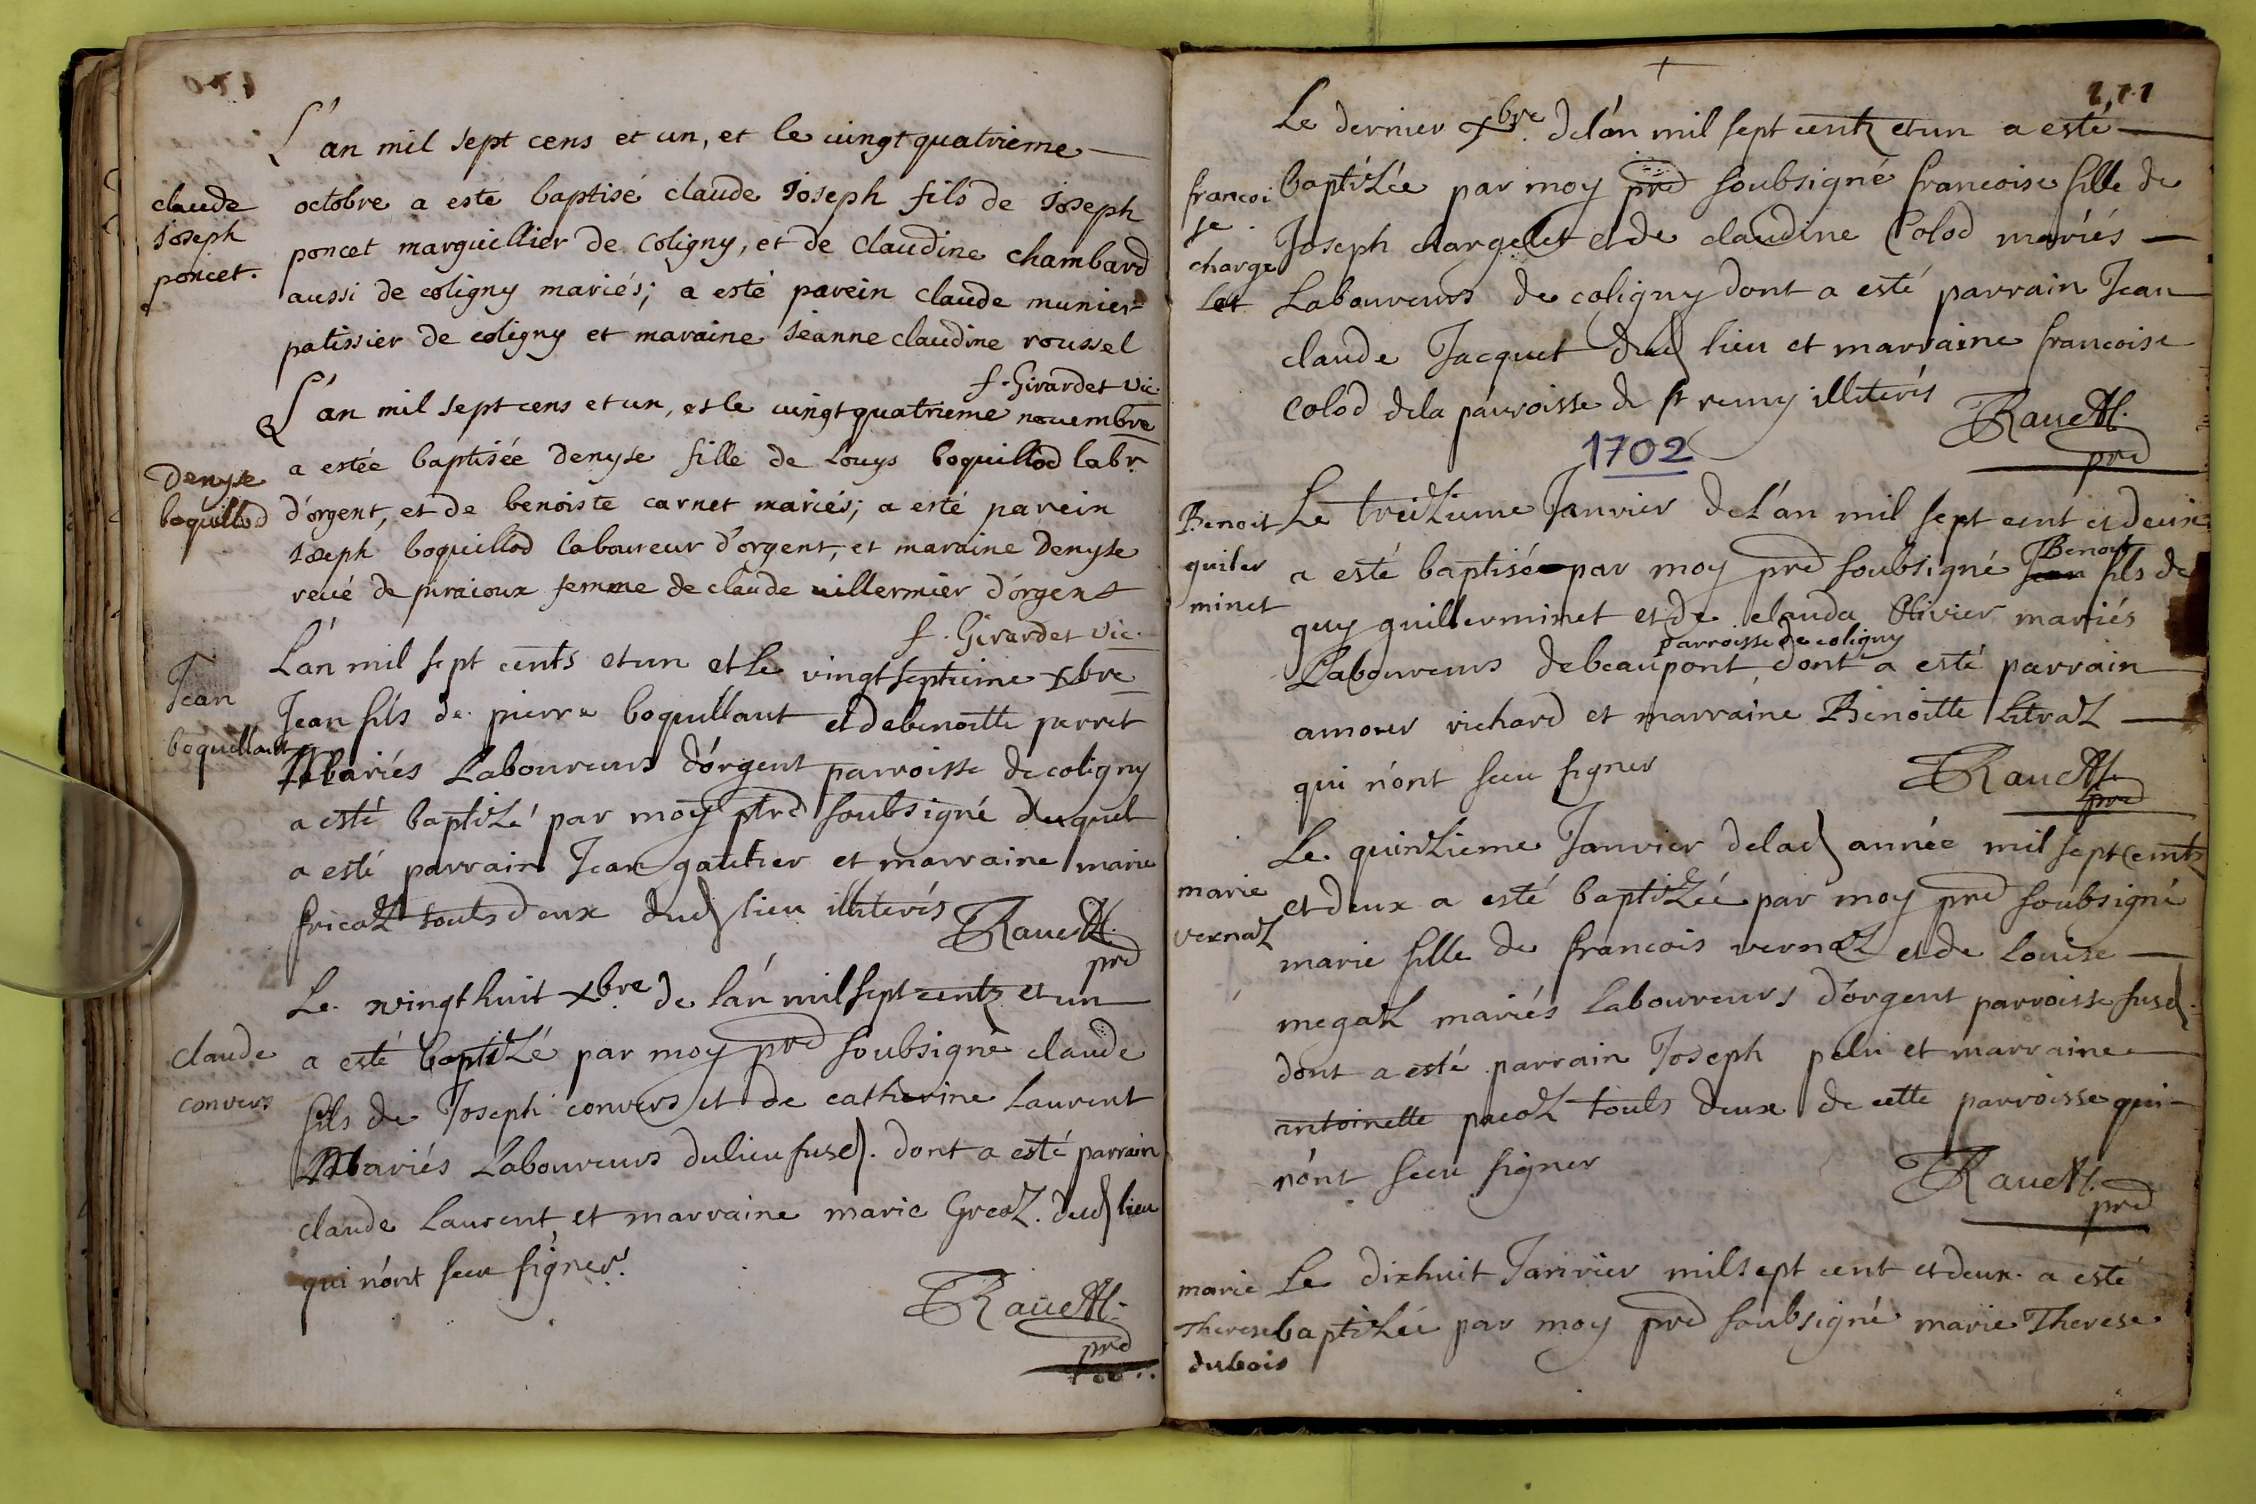 L'an mil sept cens et un, et le vingt quatrieme
claude
Joseph
poncet.
octobre a esté baptisé claude Joseph fils de Joseph
poncet marguillier de Coligny, et de Claudine chambard
aussi de coligny mariés; a esté parein claude munier
patissier de coligny et maraine Jeanne claudine roussel
f. Girardet vic.
L'an mil sept cens et un, et le vingt quatrieme novembre
Denyse
boquillod
a estée baptisée denyse fille de Louys boquillod labr.
d'orgent, et de benoiste carnet mariés; a esté parein
Joseph boquillod laboureur d'orgent, et maraine Denyse
revé de piraioux femme de claude villermier d'orgent
f. Girardet vic.
Jean
boquillaut
L'an mil sept cents et un et le vingt septieme xbre
Jean fils de pierre boquillaut et de benoitte perret
Mariés Laboureurs d'orgent parroisse de coligny
a esté baptizé par moy ptre soubsigné duquel
a esté parrain Jean gautier et marraine marie
fricaz touts deux dud lieu illiterés
pre
Le vingt huit xbre de l'an mil sept centz et un
claude
convers
a esté baptizé par moy pre soubsigné claude
fils de Joseph convers et de catherine Laurent
Mariés Laboureurs du lieu susd. dont a esté parrain
claude Laurent et marraine marie Greaz. dud lieu
qui n'ont sceu signer.
pre
171
Le dernier xbre de l'an mil sept centz et un a esté
francoi
se
charge
let
baptizée par moy pre soubsigné francoise fille de
Joseph chargelet et de claudine Colod mariés
Laboureurs de coligny dont a esté parrain Jean
claude Jacquet dud lieu et marraine francoise
Colod de la parroisse de st remy illiterés
pre
1702
Benoit
guiler
minet
Le treizieme Janvier de l'an mil sept cent et deux
Benoit
a esté baptisé par moy pre soubsigné Jean fils de
guy guillerminet et de clauda Olivier mariés
parroisse de coligny
Laboureurs de beaupont, dont a esté parrain
amour richard et marraine Benoitte
qui n'ont sceu signer
pre
Le quinzieme Janvier de lad année mil sept centz
marie
vernaz
et deux a esté baptizée par moy pre soubsigné
marie fille de francois vernaz et de Louise
megaz mariés Laboureurs d'orgent parroisse susd.
dont a esté parrain Joseph pelu et marraine
antoinette touts deux de cette parroisse qui
n'ont sceu signer
pre
marie
Therese
dubois
Le dixhuit Janvier mil sept cent et deux. a esté
baptizée par moy pre soubsigné marie Therese